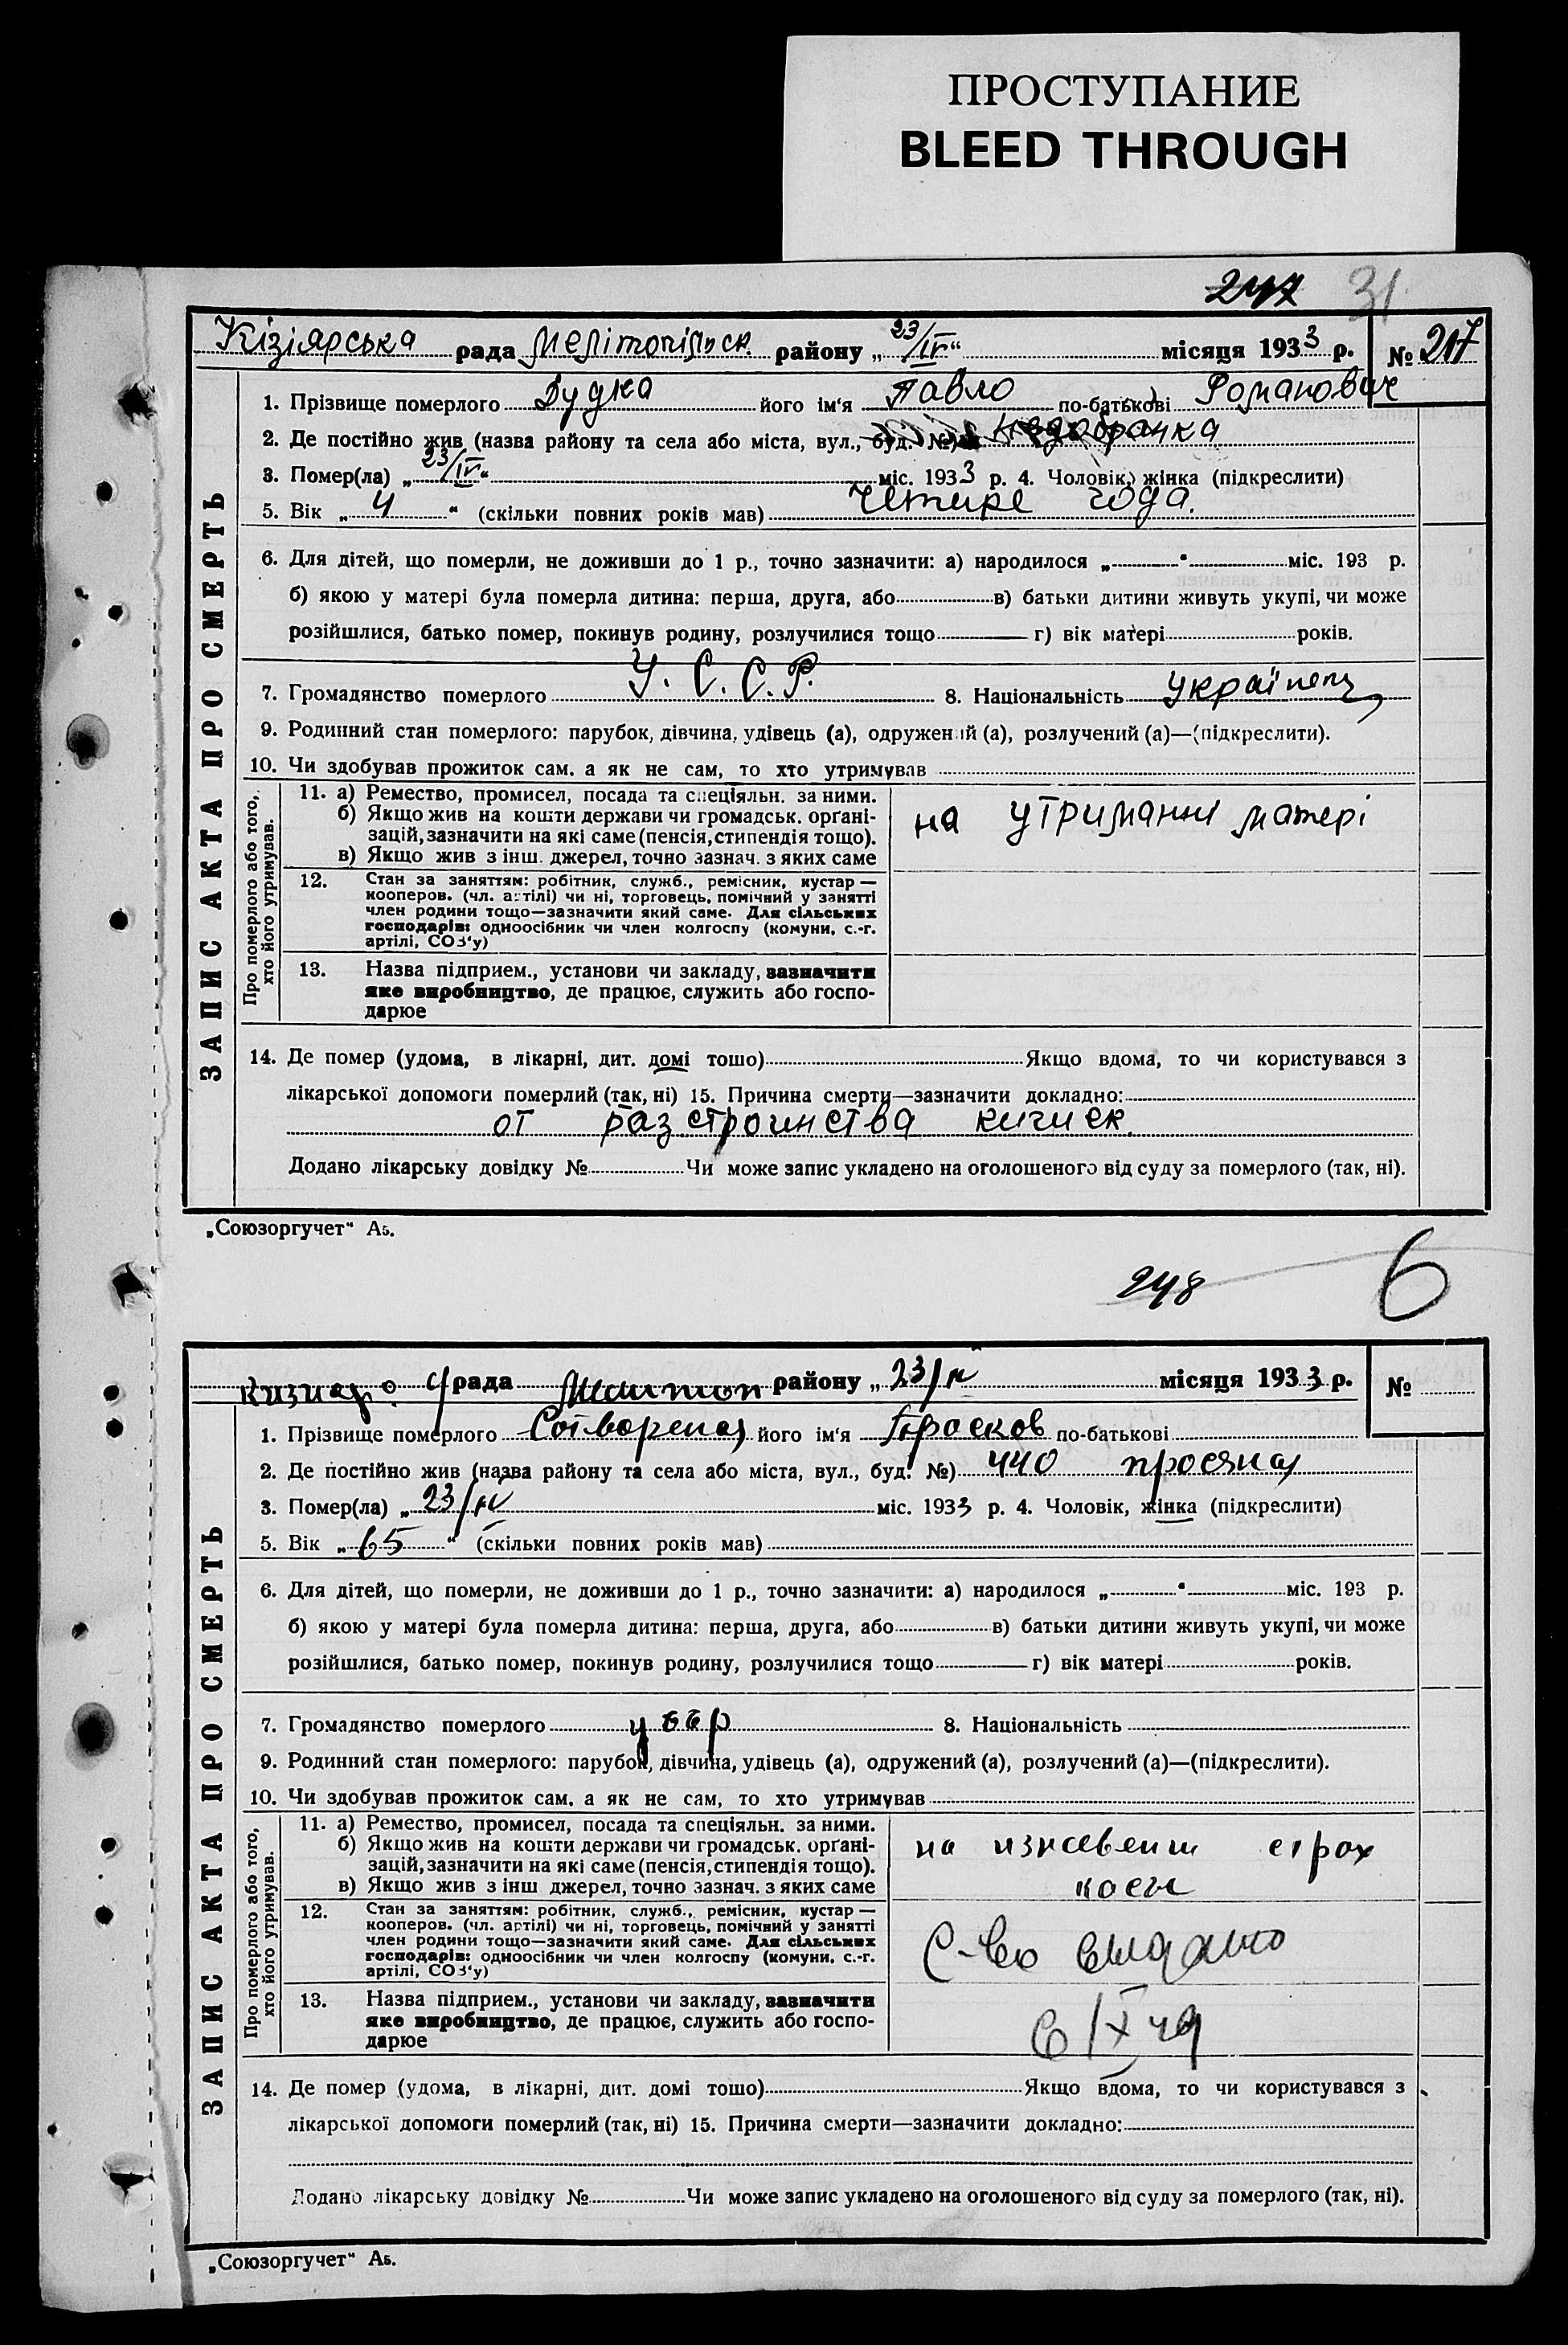 ПРОСТУПАНИЕ
BLEED THROUGH
247 31
Кізіярська рада Мелітопільск. району „23/IV“ місяця 1933 р. № 217
ЗАПИС АКТА ПРО СМЕРТЬ
1. Прізвище померлого Дудка його ім‘я Павло по-батькові Романович
2. Де постійно жив (назва району та села або міста, вул., буд. №)
3. Помер(ла) „23/IV“ міс. 1933 р. 4. Чоловік, жінка (підкреслити)
5. Вік „4“ (скільки повних років мав) Четире года.
6. Для дітей, що померли, не доживши до 1 р., точно зазначити: а) народилося „ “ міс. 193 р.
б) якою у матері була померла дитина: перша, друга, або в) батьки дитини живуть укупі, чи може
розійшлися, батько помер, покинув родину, розлучилися тощо г) вік матері років.
7. Громадянство померлого У.С.С.Р. 8. Національність українець
9. Родинний стан померлого: парубок, дівчина, удівець (а), одружений (а), розлучений (а)—(підкреслити).
10. Чи здобував прожиток сам, а як не сам, то хто утримував
Про померлого або того, хто його утримував.
11. а) Ремество, промисел, посада та спеціяльн. за ними.
б) Якщо жив на кошти держави чи громадськ. орґані-
зацій, зазначити на які саме (пенсія, стипендія тощо).
в) Якщо жив з інш. джерел, точно зазнач. з яких саме
на утриманні матері
12. Стан за заняттям: робітник, служб., ремісник, кустар—
кооперов. (чл. артілі) чи ні, торговець, помічний у занятті
член родини тощо—зазначити який саме. Для сільських
господарів: одноосібник чи член колгоспу (комуни, с.-г.
артілі, СОЗ‘у)
13. Назва підприєм., установи чи закладу, зазначити
яке виробництво, де працює, служить або госпо-
дарює
14. Де помер (удома, в лікарні, дит. домі тошо) Якщо вдома, то чи користувався з
лікарської допомоги померлий (так, ні) 15. Причина смерти—зазначити докладно:
от разстроинства кичиек.
Додано лікарську довідку № Чи може запис укладено на оголошеного від суду за померлого (так, ні).
„Союзоргучет“ А5.
248 6
Кизиар. с/рада Мелитоп району „23/IV місяця 1933 р. №
ЗАПИС АКТА ПРО СМЕРТЬ
1. Прізвище померлого його ім‘я по-батькові
2. Де постійно жив (назва району та села або міста, вул., буд. №) 440 просяная
3. Помер(ла) „23/IV міс. 1933 р. 4. Чоловік, жінка (підкреслити)
5. Вік „65“ (скільки повних років мав)
6. Для дітей, що померли, не доживши до 1 р., точно зазначити: а) народилося „ “ міс. 193 р.
б) якою у матері була померла дитина: перша, друга, або в) батьки дитини живуть укупі, чи може
розійшлися, батько помер, покинув родину, розлучилися тощо г) вік матері років.
7. Громадянство померлого усср 8. Національність
9. Родинний стан померлого: парубок, дівчина, удівець (а), одружений (а), розлучений (а)—(підкреслити).
10. Чи здобував прожиток сам, а як не сам, то хто утримував
Про померлого або того, хто його утримував.
11. а) Ремество, промисел, посада та спеціяльн. за ними.
б) Якщо жив на кошти держави чи громадськ. орґані-
зацій, зазначити на які саме (пенсія, стипендія тощо).
в) Якщо жив з інш джерел, точно зазнач. з яких саме
на страх
касы
12. Стан за заняттям: робітник, служб., ремісник, кустар—
кооперов. (чл. артілі) чи ні, торговець, помічний у занятті
член родини тощо—зазначити який саме. Для сільських
господарів: одноосібник чи член колгоспу (комуни, с.-г.
артілі, СОЗ‘у)
С-во видано
13. Назва підприєм., установи чи закладу, зазначити
яке виробництво, де працює, служить або госпо-
дарює
14. Де помер (удома, в лікарні, дит. домі тошо) Якщо вдома, то чи користувався з
лікарської допомоги померлий (так, ні) 15. Причина смерти—зазначити докладно:
Додано лікарську довідку № Чи може запис укладено на оголошеного від суду за померлого (так, ні).
„Союзоргучет“ А5.